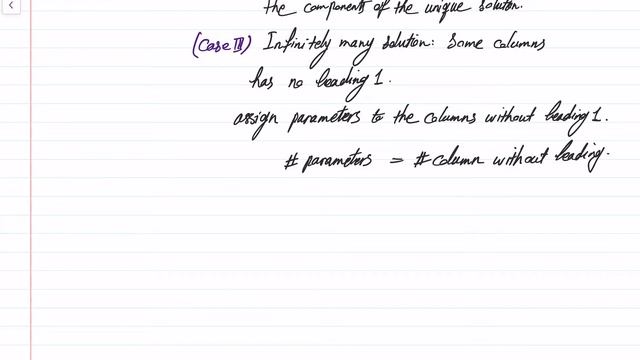 the components of the unique solution.
(Case III) Infinitely many solution: Some columns
has no leading 1.
assign parameters to the columns without leading 1.
# parameters = # column without leading.